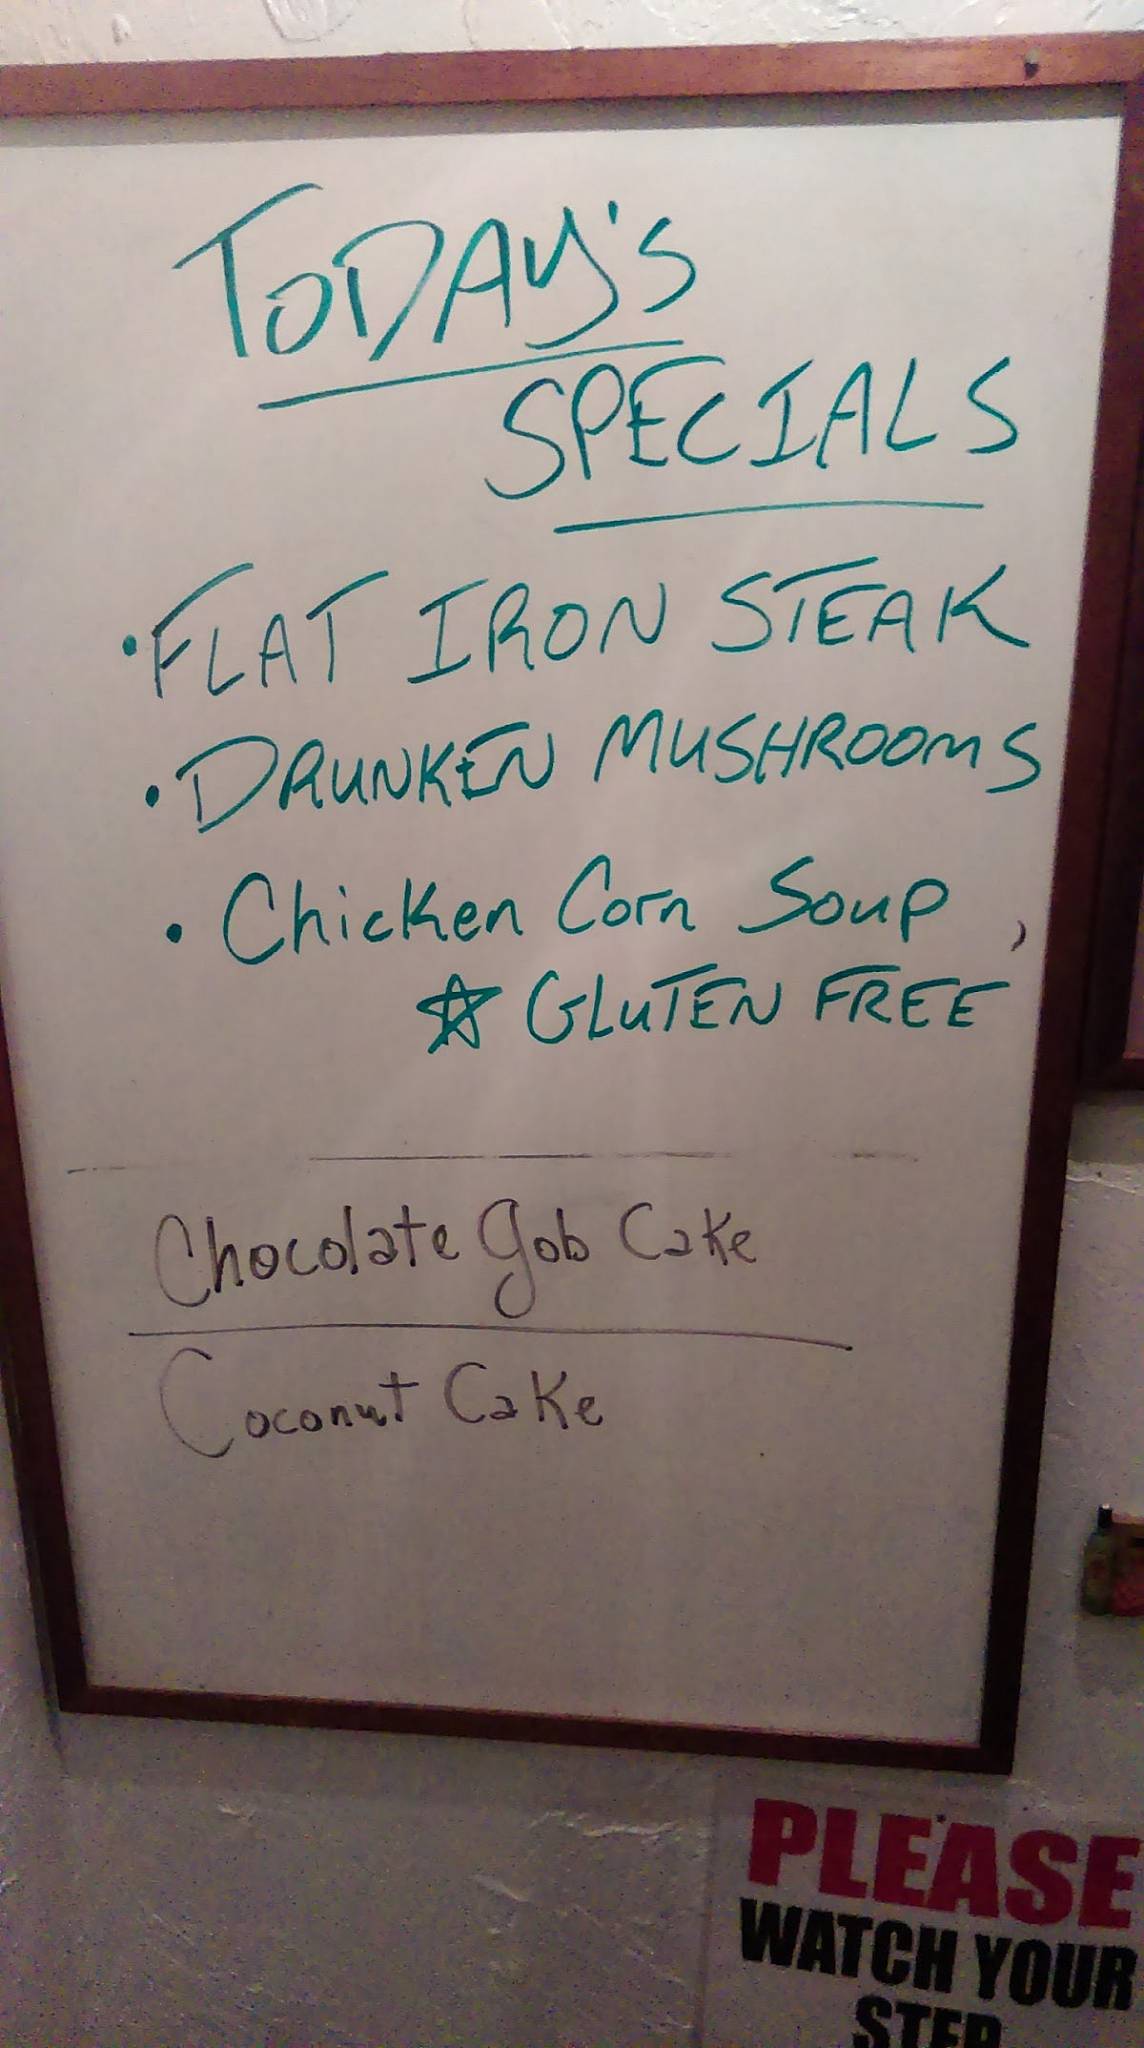 TODAY's
SPECIALS
• FLAT IRON STEAK
• DRUNKEN MUSHROOMS
• Chicken Corn Soup,
☆ GLUTEN FREE
Chocolate Gob Cake
Coconut Cake
PLEASE
WATCH YOUR
STEP